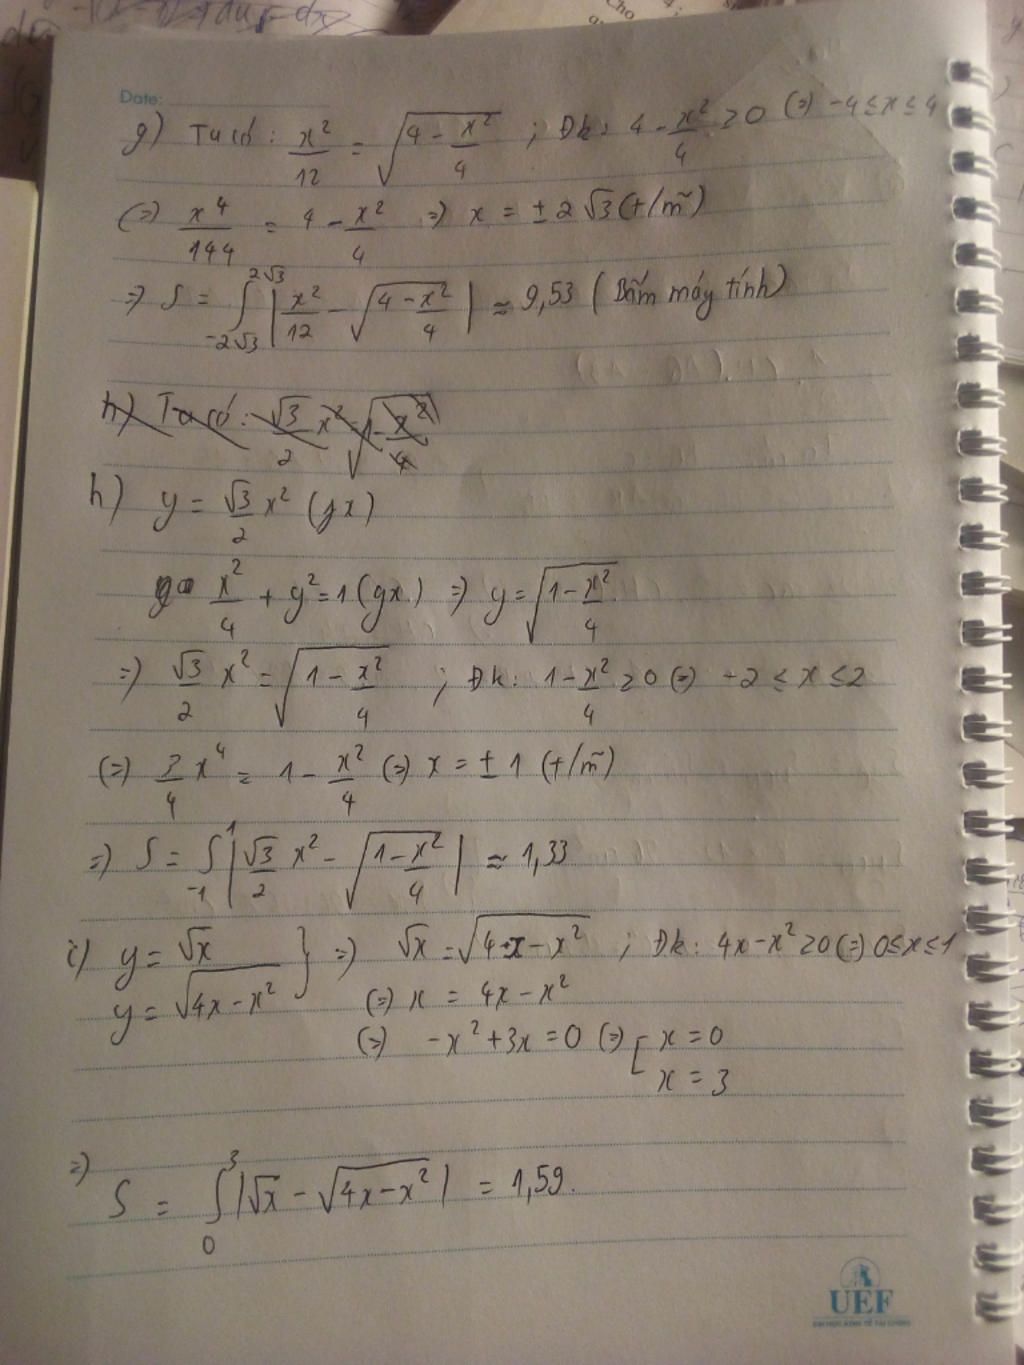 Date:
g) Ta có: x²/12 = √(4 - x²/4) ; Đk: 4 - x²/4 ≥ 0 (=) -4 ≤ x ≤ 4
(=) x⁴/144 = 4 - x²/4 =) x = ± 2√3 (t/m)
=) S = ∫_{-2√3}^{2√3} |x²/12 - √(4 - x²/4)| ≈ 9,53 (Bấm máy tính)
h) Ta có: √3/2 x² √(1 - x²/4)
h) y = √3/2 x² (gx)
x²/4 + y² = 1 (gx) =) y = √(1 - x²/4)
=) √3/2 x² = √(1 - x²/4) ; Đk: 1 - x²/4 ≥ 0 (=) -2 ≤ x ≤ 2
(=) 3/4 x⁴ = 1 - x²/4 (=) x = ± 1 (t/m)
=) S = ∫_{-1}^{1} |√3/2 x² - √(1 - x²/4)| ≈ 1,33
i) y = √x } =) √x = √(4x - x²) ; Đk: 4x - x² ≥ 0 (=) 0 ≤ x ≤ 1
y = √(4x - x²) (=) x = 4x - x²
(=) -x² + 3x = 0 (=) [ x = 0
x = 3
=)
S = ∫_{0}^{3} |√x - √(4x - x²)| = 1,59.
UEF